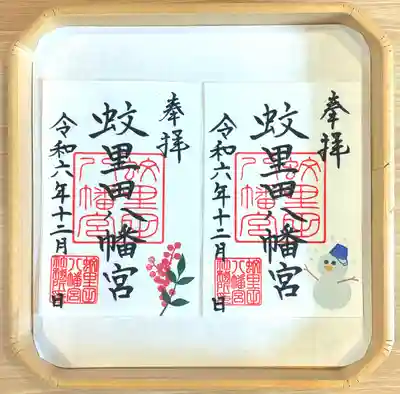 奉拝
蚊里田八幡宮
蚊里田
八幡宮
令和六年十二月 日
蚊里田
八幡宮
奉拝
蚊里田八幡宮
蚊里田
八幡宮
令和六年十二月 日
蚊里田
八幡宮